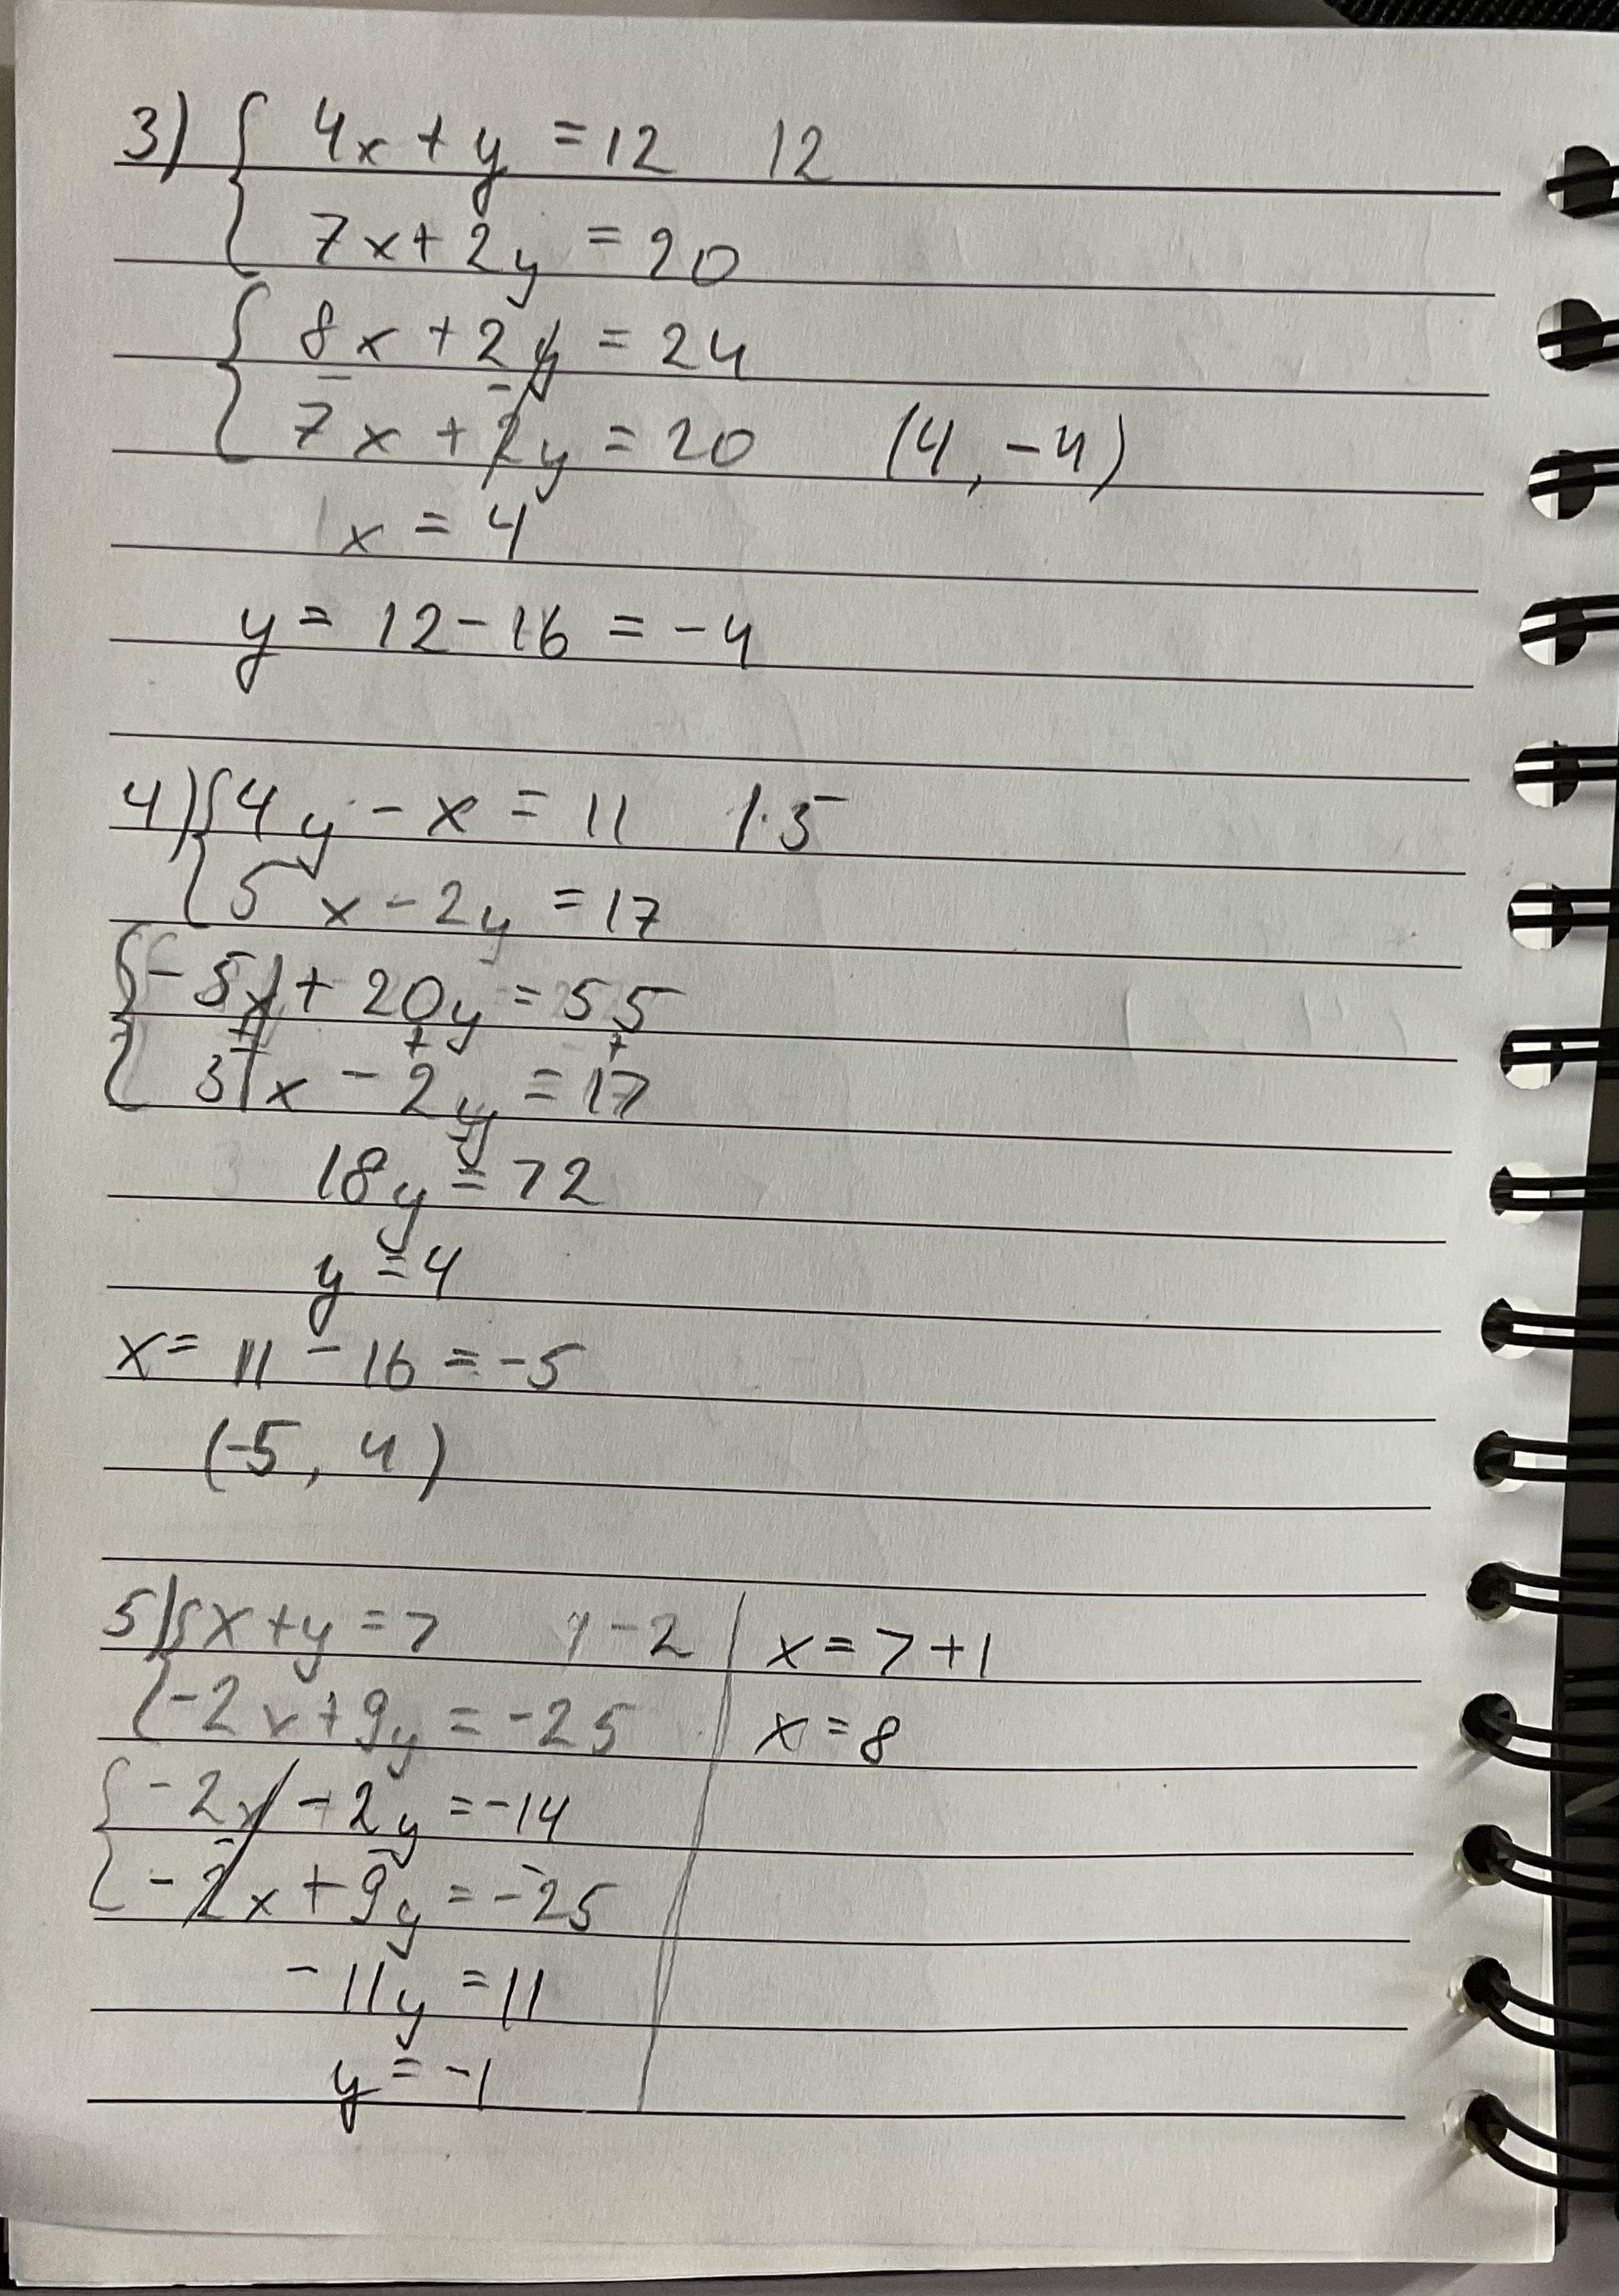 3) { 4x + y = 12 12
7x + 2y = 20
{ 8x + 2y = 24
7x + 2y = 20 (4, -4)
1x = 4
y = 12 - 16 = -4
4) { 4y - x = 11 1·5
5x - 2y = 17
{ -5x + 20y = 55
x - 2y = 17
18y = 72
y = 4
x = 11 - 16 = -5
(-5, 4)
5) { x + y = 7 -2 | x = 7 + 1
-2x + 9y = -25 | x = 8
{ -2x - 2y = -14
-2x + 9y = -25
-11y = 11
y = -1